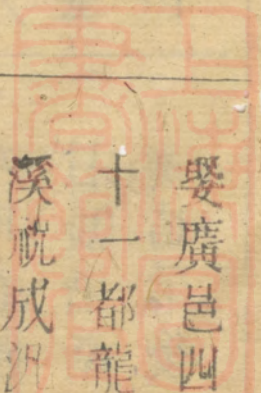 娶廣邑四
十一都龍
溪祝成汎